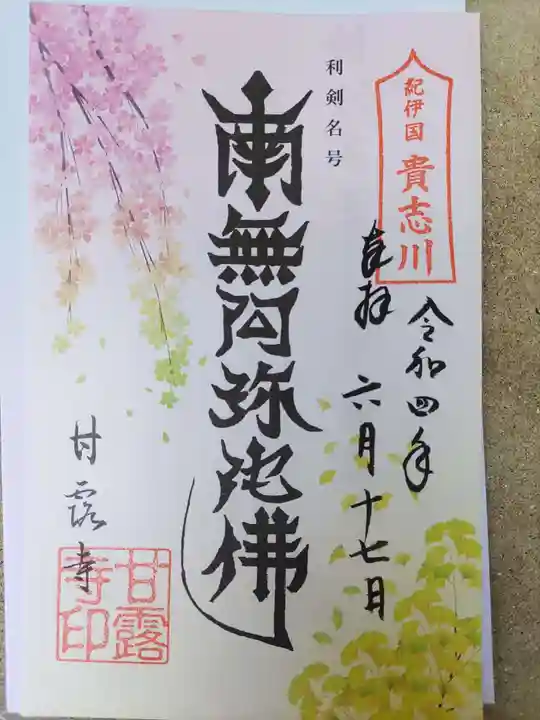 紀伊国 貴志川
令和四年
六月十七日
奉拝
利剣名号
南無阿弥陀佛
甘露寺
甘露寺印